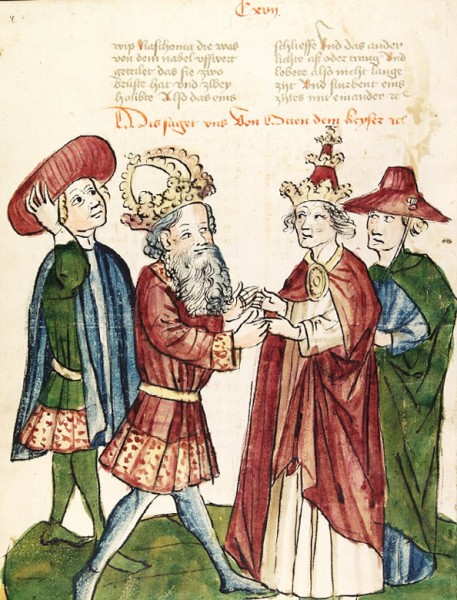 Cxvij.
wip Naschomg die was
von dem nabel uffwert
geteilet das sie zwo
brüste hat und zwey
hoibte Also das eins
schlieffe und das ander
lichte aß oder trang und
lebete also nicht lange
zyt und sturbent eins
zites mit einander ꝛc
Dis saget uns von Otten dem keyser ꝛc